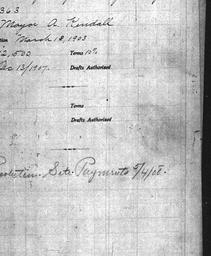 363
Mayor A. Kendall
March 18, 1903
2,500 Terms 10%
Dec 13/1907. Drafts Authorized
Terms
Drafts Authorized
Site Payments 5/4/08.